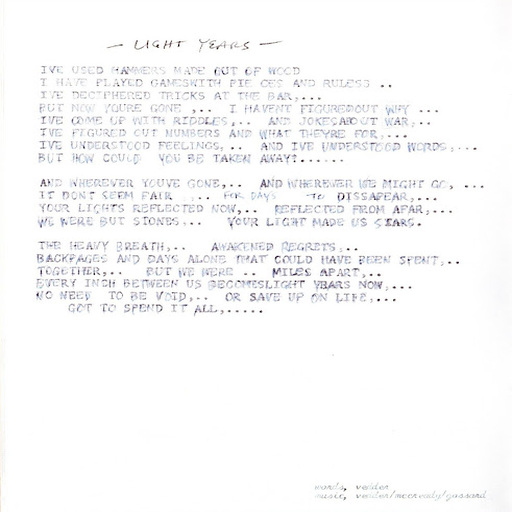 — LIGHT YEARS —
IVE USED HAMMERS MADE OUT OF WOOD
I HAVE PLAYED GAMESWITH PIE CES AND RULESS ..
IVE DECIPHERED TRICKS AT THE BAR,...
BUT NOW YOURE GONE ,.. I HAVENT FIGUREDOUT WHY ...
IVE COME UP WITH RIDDLES,.. AND JOKESABOUT WAR,..
IVE FIGURED OUT NUMBERS AND WHAT THEYRE FOR,...
IVE UNDERSTOOD FEELINGS,.. AND IVE UNDERSTOOD WORDS,...
BUT HOW COULD YOU BE TAKEN AWAY?......
AND WHEREVER YOUVE GONE,.. AND WHEREVER WE MIGHT GO, ...
IT DONT SEEM FAIR ,.. FOR DAYS TO DISSAPEAR,...
YOUR LIGHTS REFLECTED NOW,.. REFLECTED FROM AFAR,...
WE WERE BUT STONES. YOUR LIGHT MADE US STARS.
THE HEAVY BREATH,.. AWAKENED REGRETS,..
BACKPAGES AND DAYS ALONE THAT COULD HAVE BEEN SPENT,..
TOGETHER,.. BUT WE WERE .. MILES APART,..
EVERY INCH BETWEEN US BECOMESLIGHT YEARS NOW,...
NO NEED TO BE VOID,.. OR SAVE UP ON LIFE,...
GOT TO SPEND IT ALL,.....
words, vedder
music, vedder/mccready/gossard